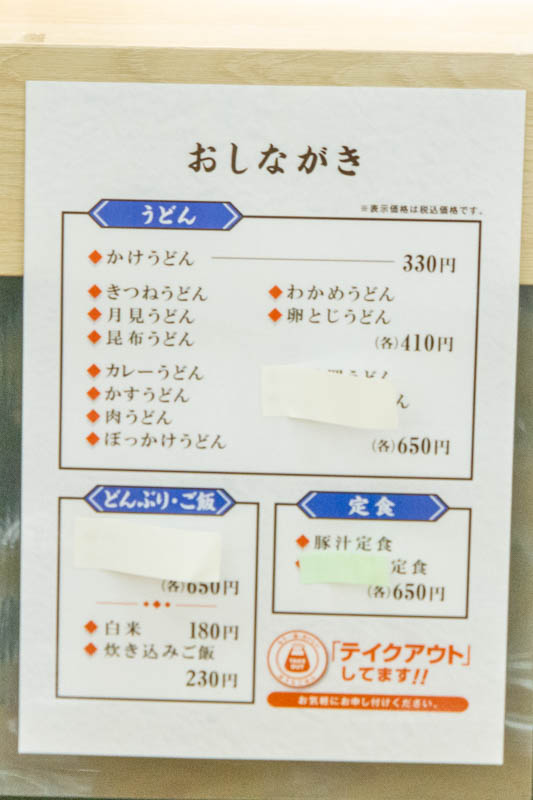 おしながき
※表示価格は税込価格です。
うどん
かけうどん 330円
きつねうどん わかめうどん
月見うどん 卵とじうどん
昆布うどん (各)410円
カレーうどん うどん
かすうどん ん
肉うどん
ぼっかけうどん (各)650円
どんぶり・ご飯
(各)650円
白米 180円
炊き込みご飯
230円
定食
豚汁定食
定食
(各)650円
TAKE OUT
「テイクアウト」
してます!!
お気軽にお申し付けください。